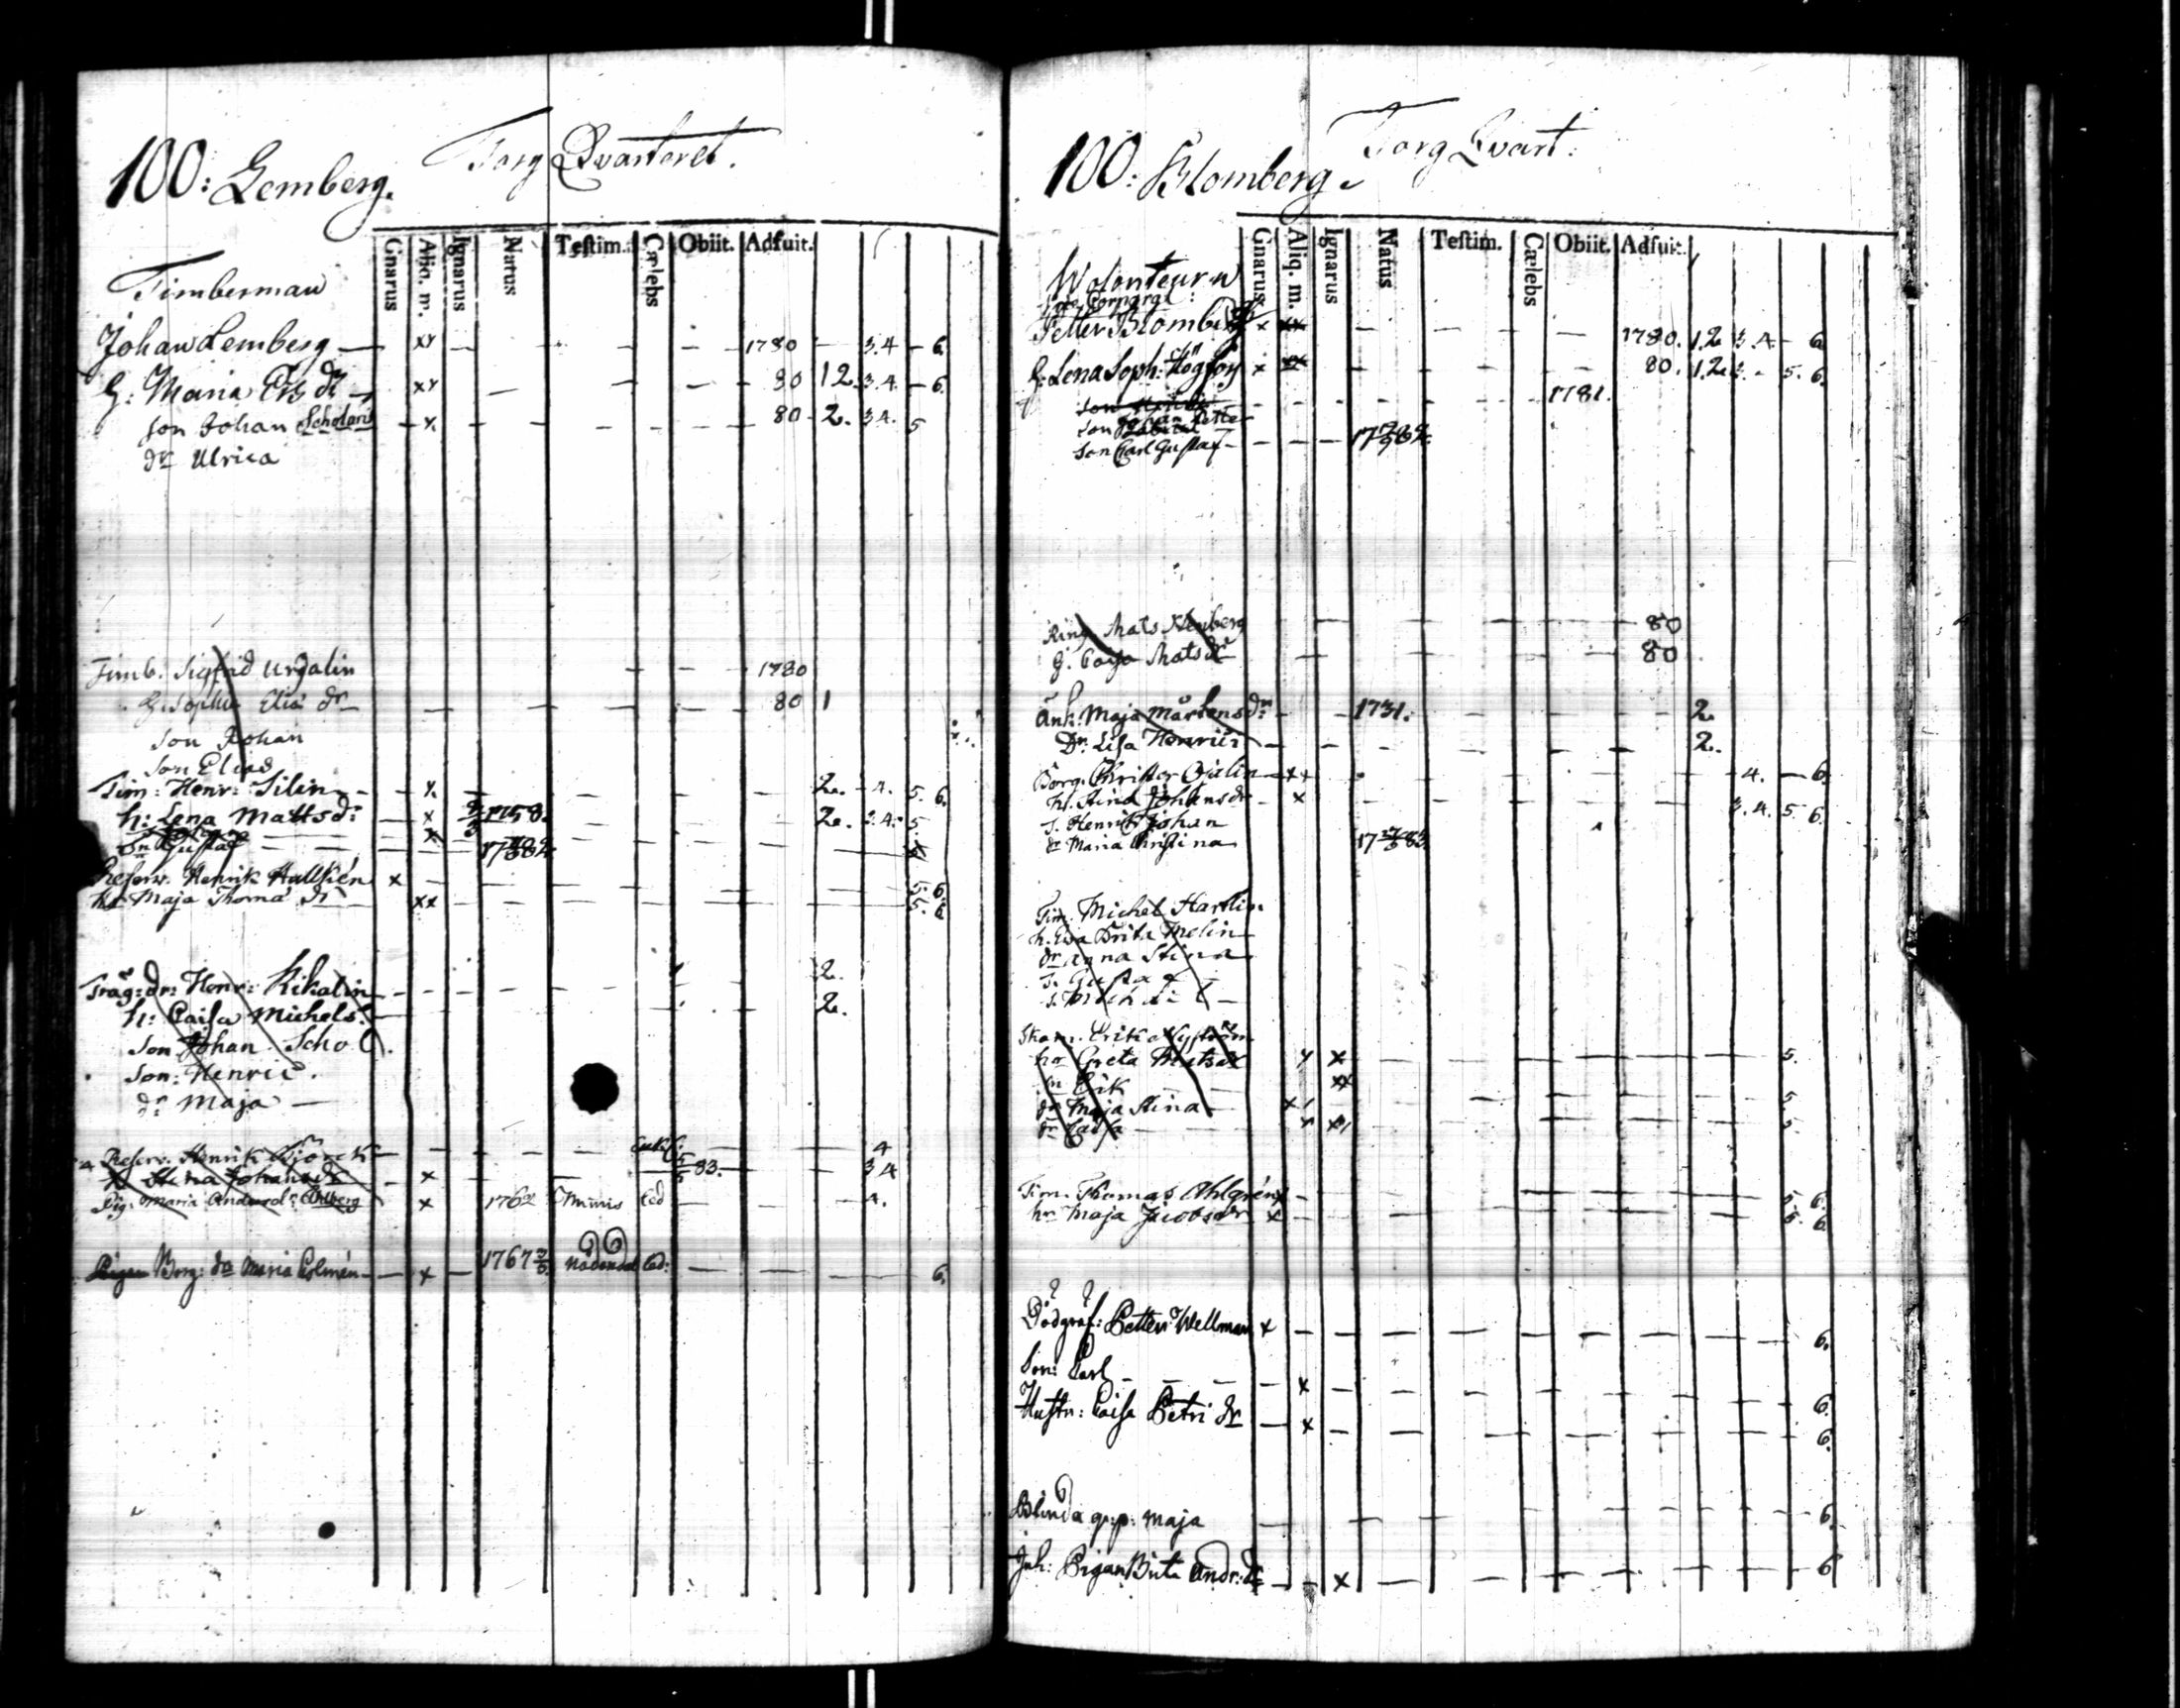 100: Lemberg. Torg Qvarteret.
Gnarus Aliq. m. Ignarus Natus Testim. Cælebs Obiit. Adfuit.
Timberman
Johan Lemberg — xx — — — — — 1780 — 3.4 — 6.
H: Maria dr — xx — — — — 80 12. 3.4. — 6.
son Johan Scholaris — x. — — — — — 80 — 2. 3 4. 5
dr Ulrica
Timb. Sigfrid Urdalin — — — 1780
H. Sophia Eliæ dr — — — — — 80 1
son Johan
son Elias
Tim: Henr: Silin — — x. — — — — — 2. — 4. 5. 6.
h: Lena Mattsdr: — x 1758. — — — — 2. 3.4. 5
sn Gustaf — — x 1782 — — — —
Reserv. Henrik Hallhén x — — — — — — — 5. 6.
hr Maja Thomæ dr — xx — — — — — — 5. 6.
Träg:dr: Henr: Kikalin — — — — — — — 2.
h: Caisa Michels: — — — — 2.
Son Johan Schol.
Son: Henric.
dr Maja —
Reserv. Henrik Björck — — — — — — — 4
Stina Johansdr — x — — 83. — — 3 4
Pig. Maria Andersdr Ahlberg x 1762 led — — — 4.
Borg: dr Maria — x — 1767 Nådendal led: — — — — 6.
100: Blomberg. Torg Qvart:
Gnarus Aliq. m. Ignarus Natus Testim. Cælebs Obiit. Adfuit.
Wolonteurn
Petter Blomberg x xx — — — — 1780. 1.2 3.4 — 6
H: Lena Soph: Högfors x xx 80. 1.2. 3. — 5. 6.
son — — — — — — 1781.
son Johan Petter
son Carl Gustaf — — — — 1782.
Mats — — — — — 80
H. Caisa Matsdr — — — — 80
Änk: Maja Mårtensdr: — — 1731. — — — — — 2.
Dr. Lisa Henrici — — — — — — — 2.
Borg. Christer — xx — — — — — — 4. — 6.
h. Stina Johansdr — x — — — — — — 3.4. 5 6.
s. Henrik Johan
dr Maria Christina 1783.
Tim. Michel Harlin
h. Eva Brita Melin
dr Anna Stina
s. Gustaf —
s. Michael —
Erik Nyström
hr Greta Matsdr x x — — — — — — — 5.
sn Erik — — xx
dr Maja Stina — x — — — — — 5.
dr Caisa — — — x — — — — 5.
Tim. Thomas Ahlgrén x — — — — — — 5 6.
hr Maja Jacobsdr x — — — — — — 5. 6.
Dödgräf: Petter Wellman x — — — — — — — — — 6.
Son: Carl — — — — x — — — — — — — 6.
Hustr: Caisa Petri dr — x — — — — — — — — 6.
Blinda Maja — — — — — — — — 6.
Inh: Pigan Brita Andr: dr — — x — — — — — — — 6